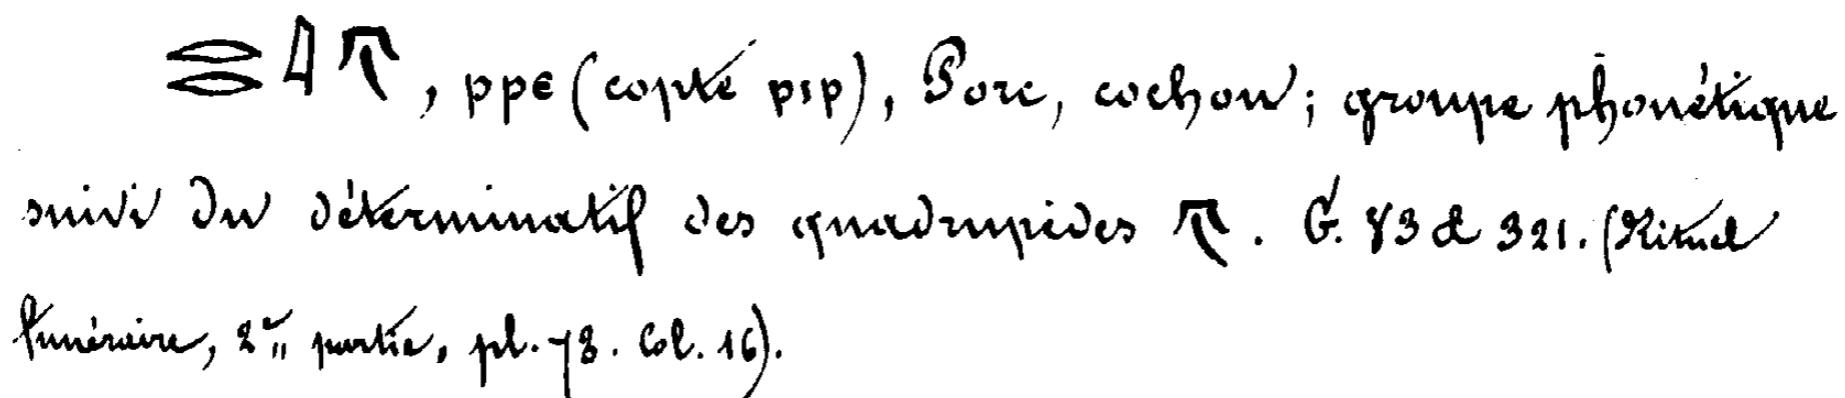 𓂋𓂋𓇋𓄛, ⲣⲣⲉ (copte ⲣⲓⲣ), Porc, cochon; groupe phonétique
suivi du déterminatif des quadrupèdes 𓄛. G. 83 & 321. (Rituel
funéraire, 2e partie, pl. 78. Col. 16).